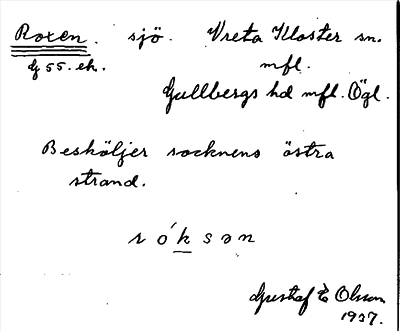 Roxen. sjö. Vreta Kloster sn.
G 55. ek. mfl.
Gullbergs hd mfl. Ögl.
Besköljer socknens östra
strand.
ró́ksən
Gustaf E Olsson
1937.